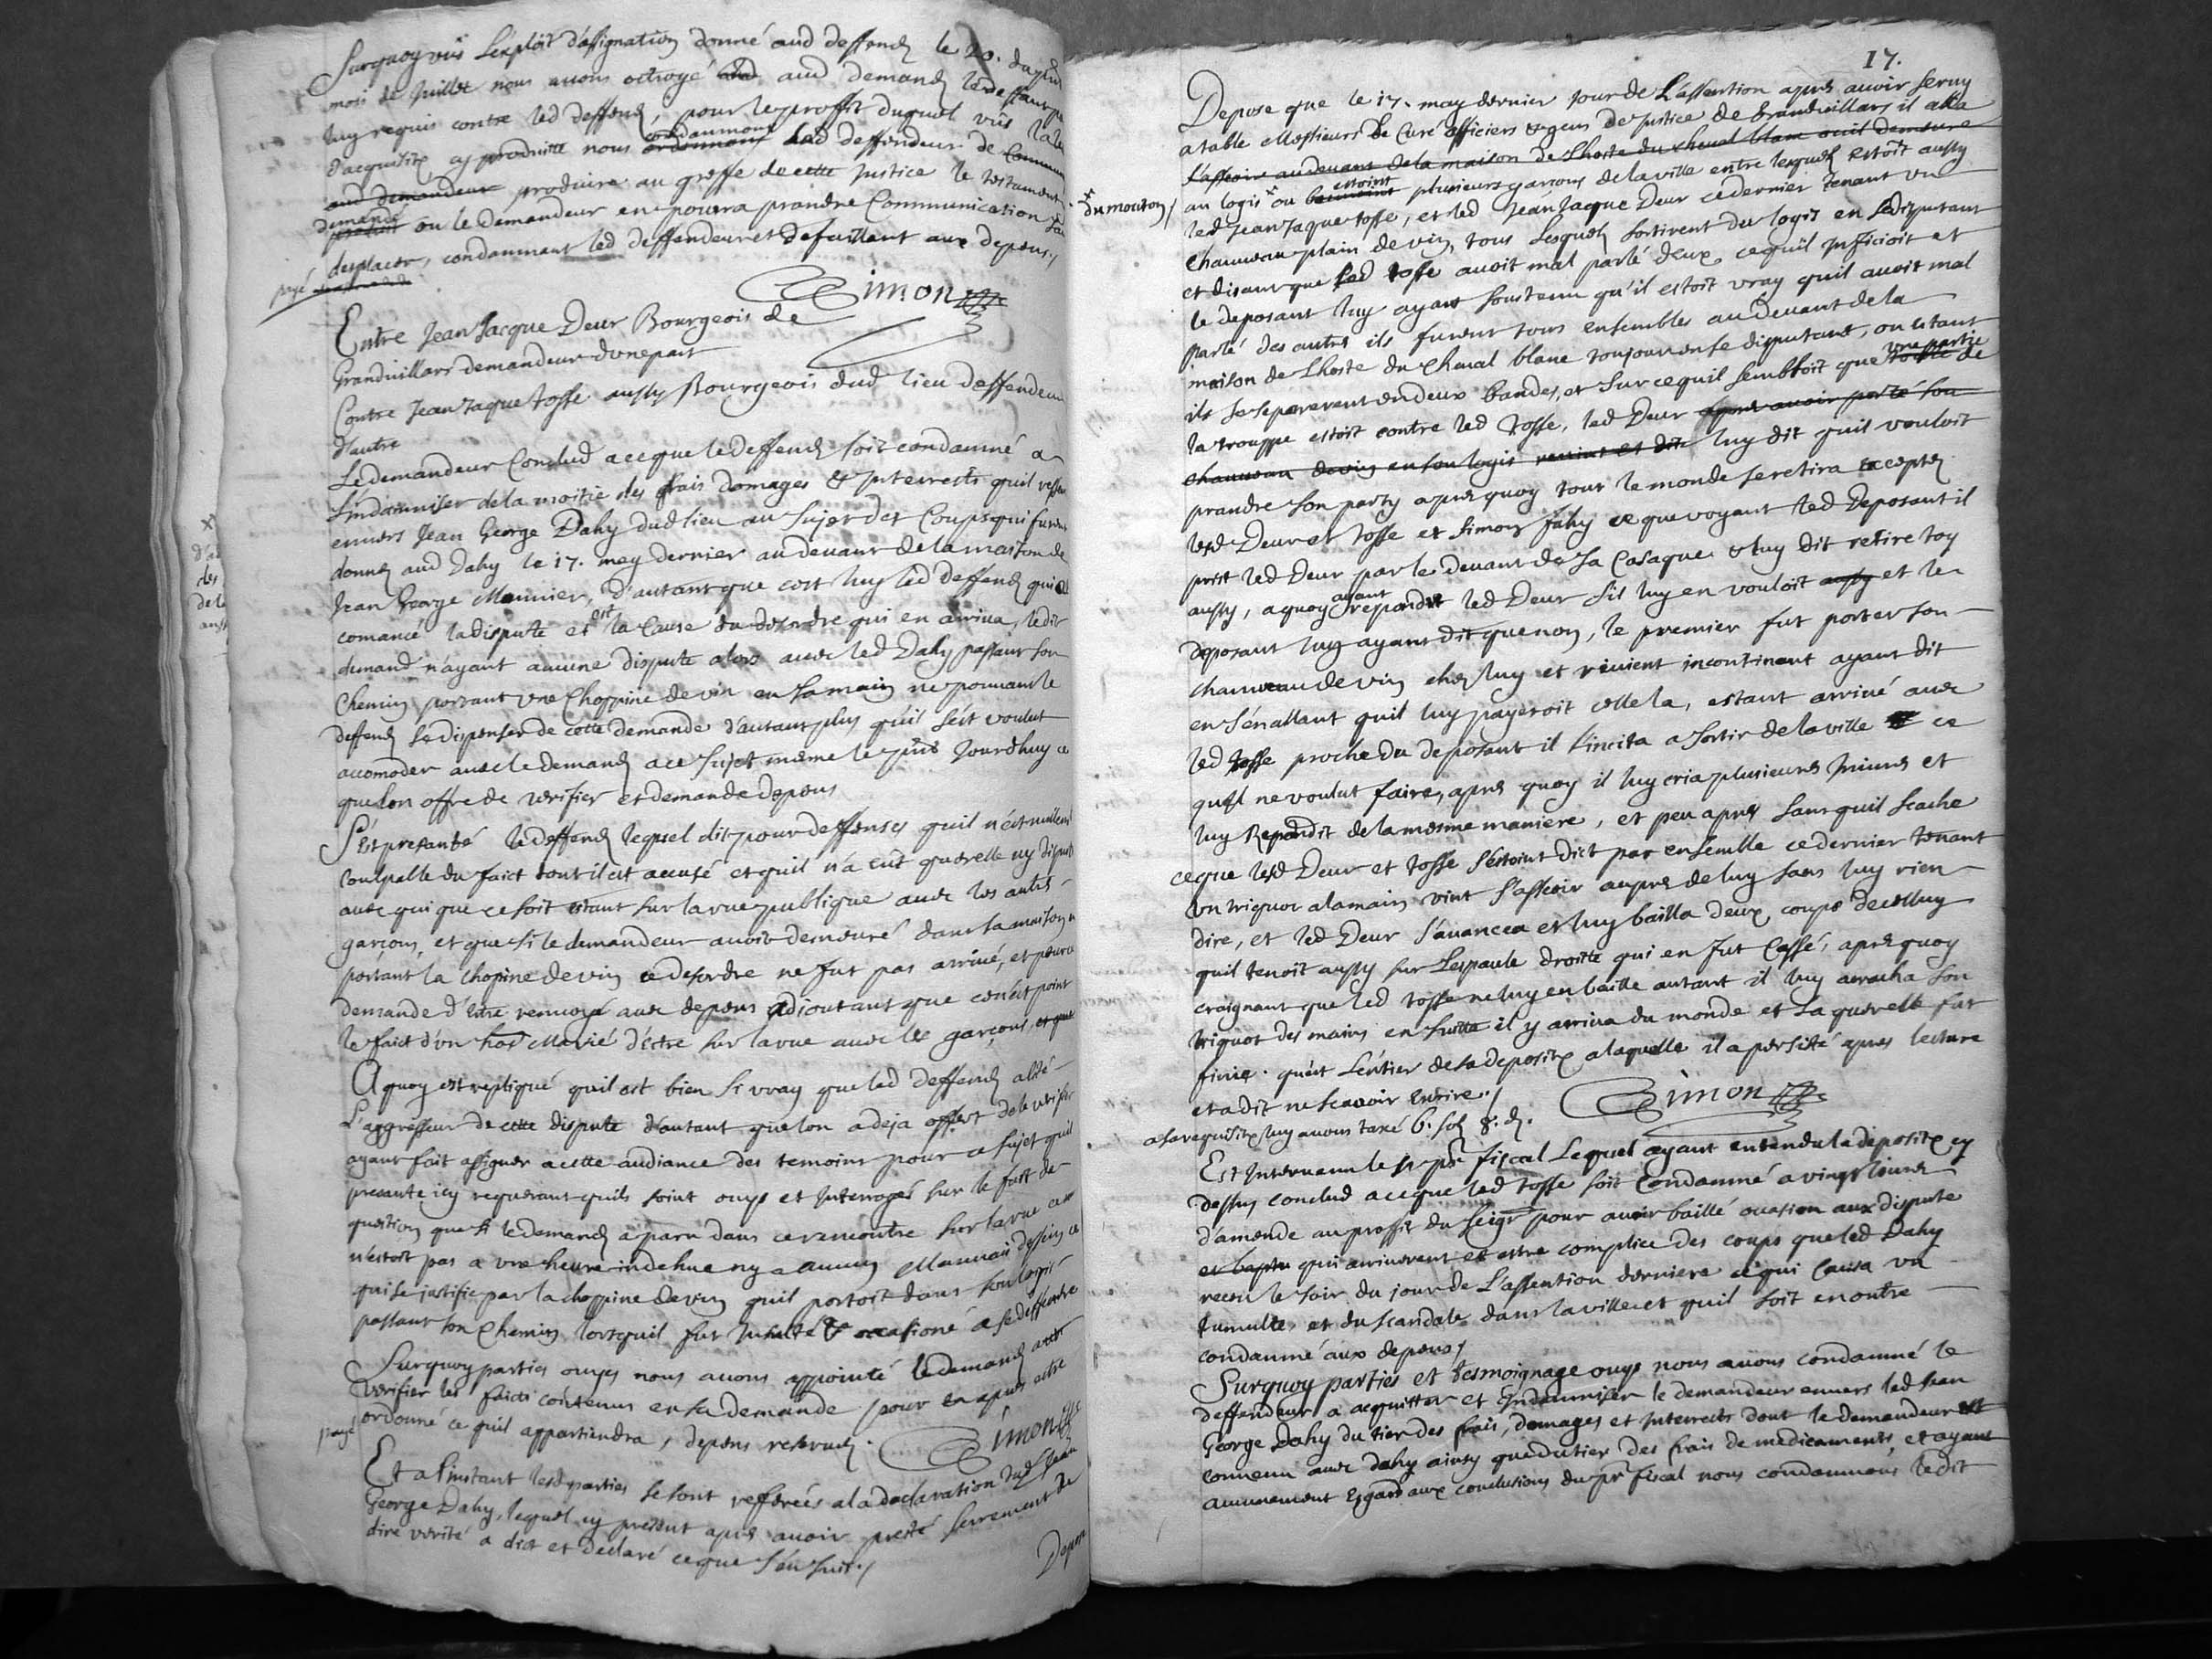 Surquoy vüs L'exploit d'assignation donné aud deffend le 20. du
mois de Juillet nous avons octroyé aud demand le deffaut
luy requis contre led deffend, pour le proffit duquel vüs
d'acquisition cy produitte nous condamnons led deffendeur de
aud demandeur produire au greffe de cette Justice le testament
ou le demandeur en pourra prandre Communication
desplacer, condamnant led deffendeur et defaillant aux depens./
payé
Simon
Entre Jean Jacque Deur Bourgeois de
Grandvillars demandeur d'une part
Contre Jean Jaque tosse aussy Bourgeois dud lieu deffendeur
d'autre
Le demandeur Conclud a ce que le deffend soit condamné a
l'indamniser de la moitie des frais domages & Interrests quil
envers Jean George Dahy dud lieu au Sujet des Coups qui furent
donnés aud Dahy le 17. mey dernier au devant de la maison de
Jean George Meunier, d'autant que cest luy led deffend qui a
comancé la dispute et est la Cause du desordre qui en arriva, ledit
demand n'ayant aucune dispute alors avec led Dahy passant son
Chemin portant vne Choppine de vin en sa main ne pouvant le
deffend se dispenser de cette demande d'autant plus qu'il s'est voulut
accomoder avec le demand a ce Sujet mesme le jourdhuy ce
que lon offre de verifier et demande depens
S'est presanté le deffend lequel dit pour deffenses quil n'est nullem
coulpable du faict dont il est accusé et quil n'a eüt querelle ny dispute
avec qui que ce soit estant sur la rue publique avec les autres
garçons, et que si le demandeur avoit demeuré dans sa maison
portant la chopine de vin ce desordre ne fut pas arrivé, et pource
demande d'estre renvoyé avec depens adjoutant que ce n'est point
le faict d'un Marié d'estre sur la rue avec les garçons, et que
A quoy est repliqué quil est bien si vray que led deffend a esté
L'aggresseur de cette dispute d'autant que lon a deja offert de le verifier
ayant fait assigner a cette audiance des temoins pour ce sujet quil
presante icy requerant quils soint ouys et Interrogés sur le fait de
question que si le demand a paru dans ce rencontre sur la rue ce
n'estoit pas a vne heure indehue ny a aucun Mauvais dessein ce
qui se justifie par la choppine de vin quil portoit dans son logis
passant son Chemin lors quil fut Insulté & occasioné a se deffendre
Surquoy parties ouyes nous avons appointé le demand a
verifier les faicts contenus en sa demande pour en apres estre
ordonné ce quil appartiendra, depens reservés.
payé
Simon
Et a l'instant lesd parties se sont refferées a la declaration dud Jean
George Dahy, lequel cy present apres avoir presté serrement de
dire verité a dict et declaré ce que s'en suit./
Depose
17.
Depose que le 17. may dernier jour de L'assention apres avoir servy
a table Messieurs le Curé officiers & gens de Justice de Grandvillars il alla
s'asseoir au devant de la maison de Lhoste du cheval blanc ou il demeure
au logis x ou estoint plusieurs garçons de la ville entre lesquels estoit aussy
x du mouton/
led Jean Jaque tosse, et led Jean Jaque Deur ce dernier tenant vn
chauveau plain de vin, tous Lesquels sortirent du logis en se disputant
et disant que led tosse avoit mal parlé deux, ce quil Inficioit et
le deposant luy ayant soustenu qu'il estoit vray quil avoit mal
parlé des autres ils furent tous ensembles au devant de la
maison de Lhoste du cheval blanc toujours en se disputant, ou estant
ils se separerent en deux bandes, et sur ce quil sembloit que vne partie de
la trouppe estoit contre led tosse, led Deur apres avoir porté son
chauveau de vin en son logis revint et dit luy dit quil vouloit
prandre son party apres quoy tout le monde se retira exceptés
lesd Deur et tosse et Simon fahy ce que voyant led Deposant il
prist led Deur par le devant de sa Casaque & luy dit retire toy
aussy, a quoy ayant repondt led Deur s'il luy en vouloit aussy et le
deposant luy ayant dit que non, le premier fut porter son
chauveau de vin chez luy et revient incontinant ayant dit
en s'en allant quil luy payeroit celle la, estant arrivé avec
led tosse proche du deposant il l'incita a sortir de la ville ce
quil ne voulut faire, apres quoy il luy cria plusieures Iniures et
luy Repondit de la mesme maniere, et peu apres sans quil scache
ce que lesd Deur et tosse s'estoint dict par ensemble ce dernier tenant
vn triquot a la main vint s'asseoir aupres de luy sans luy rien
dire, et led Deur s'avancea et luy bailla deux coups de celluy
quil tenoit aussy sur Lespaule droitte qui en fut Cassé, apres quoy
craignant que led tosse ne luy en baille autant il luy arracha son
triquot des mains en suitte il y arriva du monde et la querelle fut
finie. qu'est l'entier de sa deposition a laquelle il a persisté apres lecture
et a dit ne scavoir Escrire./
Simon
a sa requisition luy avons taxé 6. sols 8. d.
Est Intervenu le Sr pr fiscal Lequel ayant entendu la deposition cy
dessus conclud a ce que led tosse soit Condamné a vingt livres
d'amende au proffit du seigr pour avoir baillé occasion aux dispute
qui arriverent et estre complice des coups que led Dahy
receu le soir du jour de L'assention derniere ce qui Causa vn
tumulte et du scandale dans la ville et quil soit en outre
condamné aux depens/
Surquoy parties et tesmoignage ouys nous avons condamné le
deffendeur a acquitter et Indamniser le demandeur envers led Jean
George Dahy du tier des frais, domages et Interrests dont le demandeur est
convenu avec dahy ainsy que du tier des frais de medicaments, et ayant
aucunement Egard aux conclusions du pr fiscal nous condamnons ledit